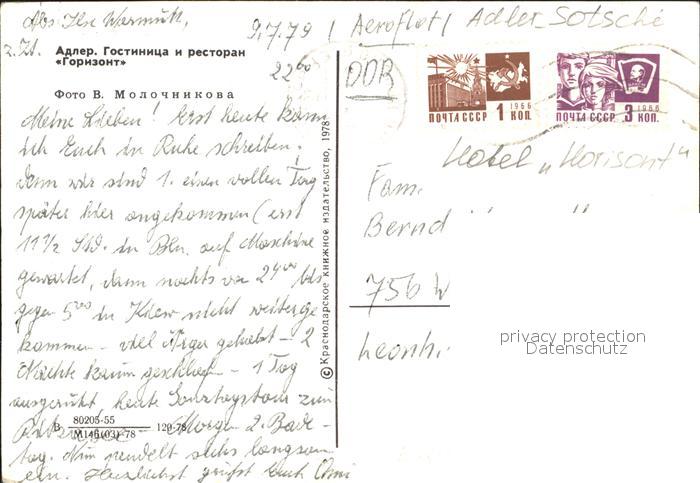 Abs. Ilse Warmuth,
z. Zt.
9.7.79 / Aeroflot / Adler-Sotsche
Адлер. Гостиница и ресторан
«Горизонт»
22⁰⁰
DDR
Фото В. Молочникова
1966
ПОЧТА СССР 1 КОП.
1966
ПОЧТА СССР 3 КОП.
Hotel „Horisont“
Meine Lieben! Erst heute kann
ich Euch in Ruhe schreiben.
Denn wir sind 1. einen vollen Tag
später hier angekommen (erst
11 ½ Std. in Bln. auf Maschine
gewartet, dann nachts von 24⁰⁰ bis
gegen 5⁰⁰ in Kiew nicht weiterge
kommen - viel Ärger gehabt - 2
Nächte kaum geschlafen - 1 Tag
ausgeruht, heute Sonntagstour zum
- Morgen 2. Bade-
tag. Nun pendelt sichs langsam
ein. Herzlichst grüßt Euch Omi
В 80205-55
М146(03)-78 120-78
© Краснодарское книжное издательство, 1978
Fam.
Bernd " "
756 W
Leonh.
privacy protection
Datenschutz